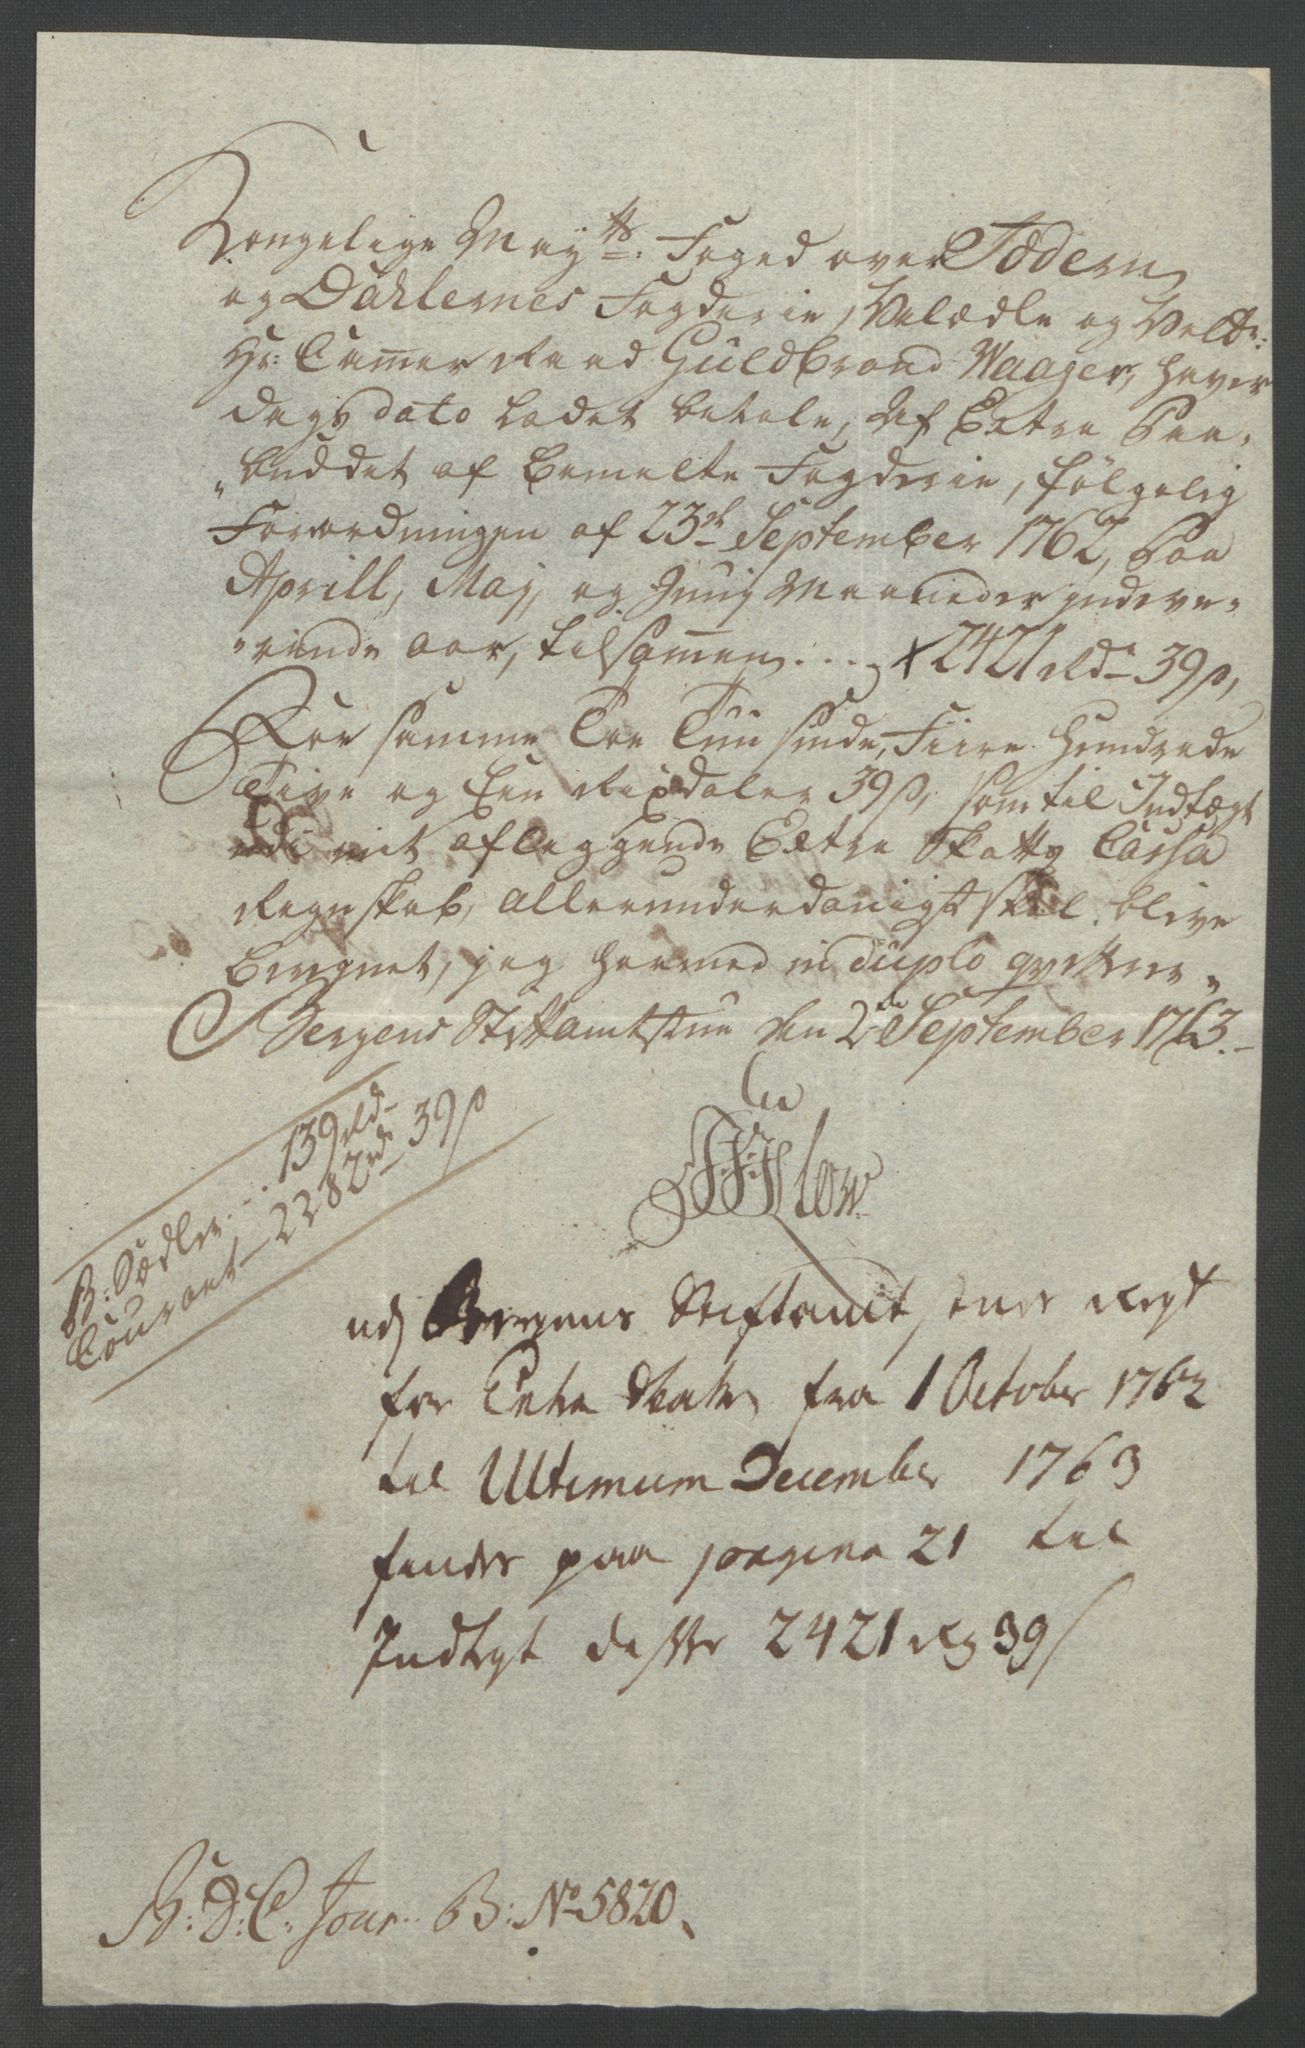 Kongelige Maytts. Foged over Jædern
og Dahlernes Fogderie, Velædle og Velbr:
Hr: Cammer Raad Guldbrand Waager, haver
dags dato ladet betale, Af Extra Paa-
„buddet af bemelte Fogderie, følgelig
Forordningen af 23de September 1762, Paa
Aprill, Maj, og Junij Maaneder indeve-
„rende aar, tilsammen .... 2421 Rdr 39 s,
For samme Toe Tuusinde, Fiire Hundrede
Tive og Een Rixdaler 39 s, som til Indtægt
udi mit aflæggende Extra Skatts Cassa
Regnskab, allerunderdanigst skal blive
beregnet, jeg hermed in duplo qvitterer.
Bergens Stiftamtstue den 2den September 1763.
B: Sædler ... 139 Rd
Courant – 2282 rd 39 s
Bülow
udj Bergens Stiftamt stues Regst
for Extra Skatten fra 1 October 1762
til Ultimum December 1763
findes paa pagina 21 til
Indtegt disse 2421 Rd 39 s
D: C: Jour: B: No 5820.